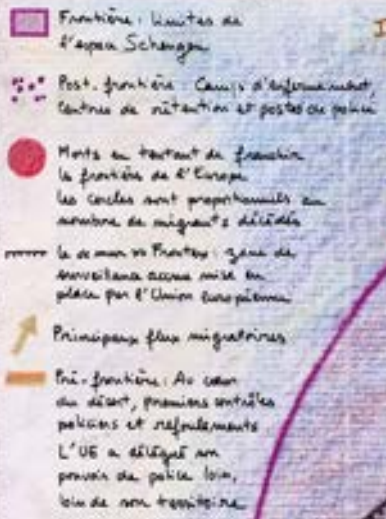 Frontière : limites de
l'espace Schengen
Post-frontière : Camps d'enfermement,
centres de rétention et postes de police
Morts en tentant de franchir
la frontière de l'Europe
les cercles sont proportionnels au
nombre de migrants décédés
Frontex : zone de
surveillance accrue mise en
place par l'Union européenne
Principaux flux migratoires
Pré-frontière : Au cœur
du désert, premiers contrôles
policiers et refoulements.
L'UE a délégué son
pouvoir de police loin,
loin de son territoire